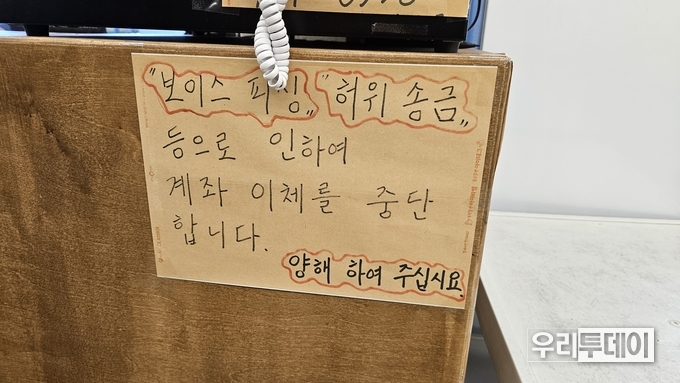 "보이스 피싱" "허위 송금"
등으로 인하여
계좌 이체를 중단
합니다.
양해 하여 주십시요.
우리투데이